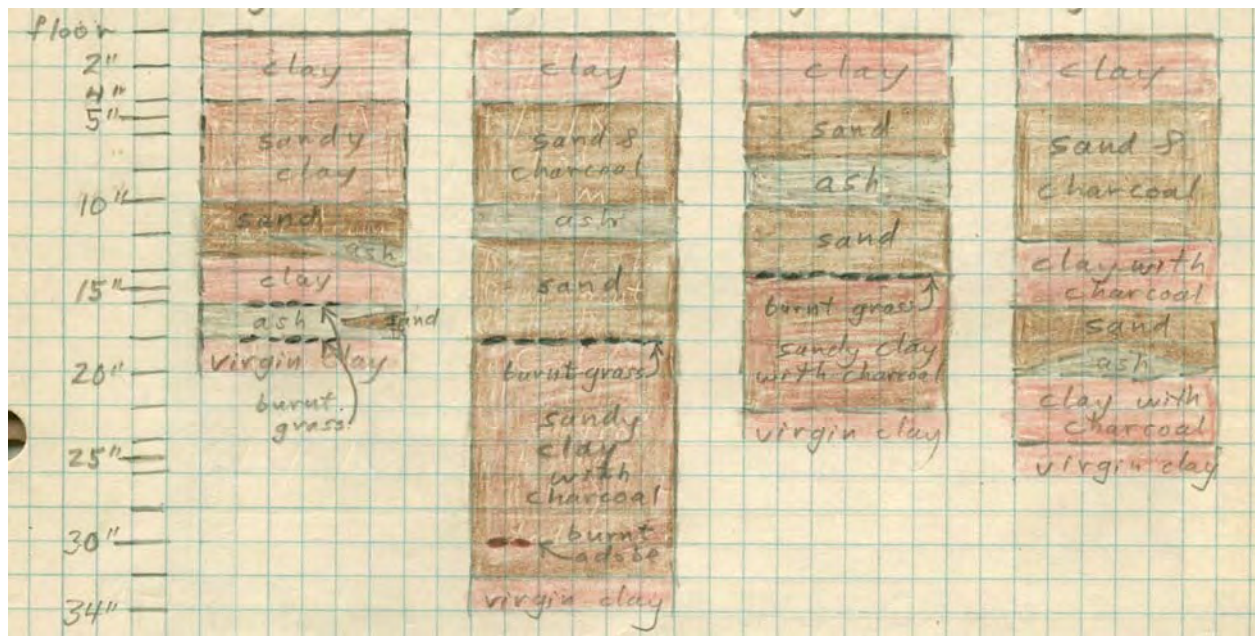 floor
2"
4"
5"
10"
15"
20"
25"
30"
34"
clay
sandy
clay
sand
ash
clay
ash
sand
virgin clay
burnt
grass
clay
sand &
charcoal
ash
sand
burnt grass
sandy
clay
with
charcoal
burnt
adobe
virgin clay
clay
sand
ash
sand
burnt grass
sandy clay
with charcoal
virgin clay
clay
sand &
charcoal
clay with
charcoal
sand
ash
clay with
charcoal
virgin clay